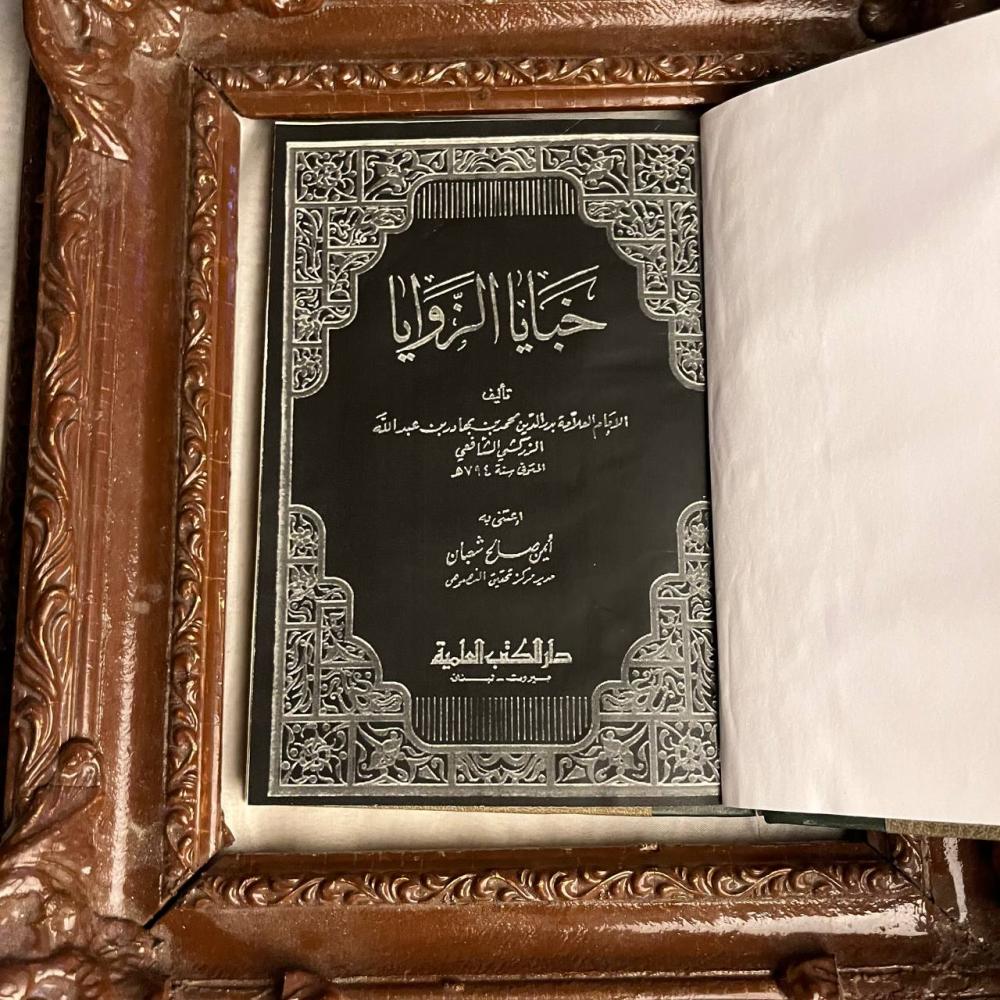 خَبَايَا الزَّوَايَا
تأليف
الإمام العلّامة بدر الدّين محمد بن بهادر بن عبد اللّه
الزركشي الشّافعي
المتوفى سنة ٧٩٤ هـ
اعتنى به
أيمن صالح شعبان
مدير مركز تحقيق النصوص
دار الكتب العلمية
بيروت - لبنان